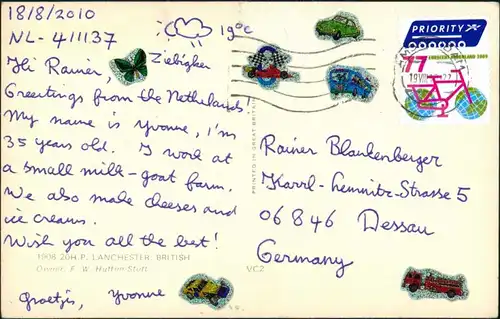 18/8/2010
19°C
NL-411137
Hi Rainer,
Greetings from the Netherlands!
My name is Yvonne, I'm
35 years old. I work at
a small milk-goat farm.
We also make cheeses and
ice creams.
Wish you all the best!
1908 20H.P. LANCHESTER BRITISH
Owner, F. W. Hutton-Stott
VC2
Groetjes, Yvonne
PRINTED IN GREAT BRITAIN
PRIORITY
77
NEDERLAND 2009
Rainer Blankenberger
Karrl-Liemnitz-Strasse 5
06846 Dessau
Germany